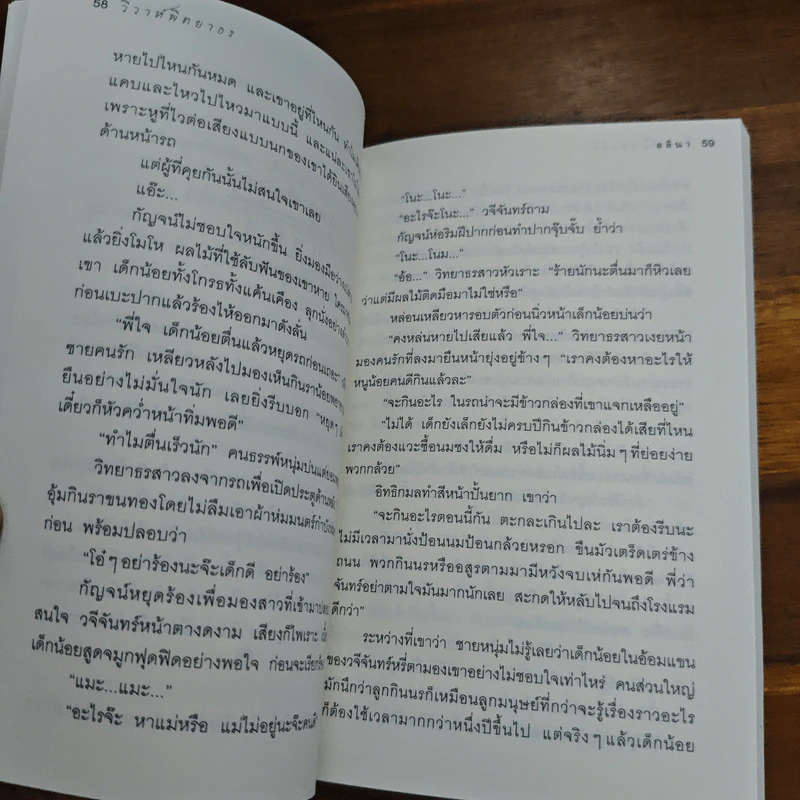 58 วิวาห์พิทยาธร
หายไปไหนกันหมด และเขาอยู่ที่ไหนกัน
แคบและไหวไปไหวมาแบบนี้ และแน่ละ
เพราะหูที่ไวต่อเสียงแบบนกของเขาได้ยินเสียง
ด้านหน้ารถ
แต่ผู้ที่คุยกันนั้นไม่สนใจเขาเลย
แอ๊ะ...
กัญจน์ไม่ชอบใจหนักขึ้น ยิ่งมองมือ
แล้วยิ่งโมโห ผลไม้ที่ใช้ลับฟันของเขาหาย
เขา เด็กน้อยทั้งโกรธทั้งแค้นเคือง ลุกนั่ง
ก่อนเบะปากแล้วร้องไห้ออกมาดังลั่น
“พี่ใจ เด็กน้อยตื่นแล้วหยุดรถก่อนเถอะ”
ชายคนรัก เหลียวหลังไปมองเห็นกินราน้อย
ยืนอย่างไม่มั่นใจนัก เลยยิ่งรีบบอก “หยุดๆ
เดี๋ยวก็หัวคว่ำหน้าทิ่มพอดี”
“ทำไมตื่นเร็วนัก” คนธรรพ์หนุ่มบ่น
วิทยาธรสาวลงจากรถเพื่อเปิดประตูด้าน
อุ้มกินราขนทองโดยไม่ลืมเอาผ้าห่มมนตร์
ก่อน พร้อมปลอบว่า
“โอ๋ๆ อย่าร้องนะจ๊ะเด็กดี อย่าร้อง”
กัญจน์หยุดร้องเพื่อมองสาวที่เข้ามา
สนใจ วจีจันทร์หน้าตางดงาม เสียงก็ไพเราะ
เด็กน้อยสูดจมูกฟุดฟิดอย่างพอใจ ก่อนจะ
“แมะ...แมะ...”
“อะไรจ๊ะ หาแม่หรือ แม่ไม่อยู่นะจ๊ะ
อลินา 59
“โนะ...โนะ...”
“อะไรจ๊ะโนะ...” วจีจันทร์ถาม
กัญจน์ห่อริมฝีปากก่อนทำปากจุ๊บจั๊บ ย้ำว่า
“โนะ...โนม...”
“อ้อ...” วิทยาธรสาวหัวเราะ “ร้ายนักนะตื่นมาก็หิวเลย
ว่าแต่มีผลไม้ติดมือมาไม่ใช่หรือ”
หล่อนเหลียวหารอบตัวก่อนนิ่วหน้าเล็กน้อยบ่นว่า
“คงหล่นหายไปเสียแล้ว พี่ใจ...” วิทยาธรสาวเงยหน้า
มองคนรักที่ลงมายืนหน้ายุ่งอยู่ข้างๆ “เราคงต้องหาอะไรให้
หนูน้อยคนดีกินแล้วละ”
“จะกินอะไร ในรถน่าจะมีข้าวกล่องที่เขาแจกเหลืออยู่”
“ไม่ได้ เด็กยังเล็กยังไม่ครบปีกินข้าวกล่องได้เสียที่ไหน
เราคงต้องแวะซื้อนมชงให้ดื่ม หรือไม่ก็ผลไม้นิ่มๆ ที่ย่อยง่าย
พวกกล้วย”
อิทธิกมลทำสีหน้าปั้นยาก เขาว่า
“จะกินอะไรตอนนี้กัน ตะกละเกินไปละ เราต้องรีบนะ
ไม่มีเวลามานั่งป้อนนมป้อนกล้วยหรอก ขืนมัวเตร็ดเตร่ข้าง
ถนน พวกกินนรหรืออสูรตามมามีหวังจบเห่กันพอดี พี่ว่า
จันทร์อย่าตามใจมันมากนักเลย สะกดให้หลับไปจนถึงโรงแรม
ดีกว่า”
ระหว่างที่เขาว่า ชายหนุ่มไม่รู้เลยว่าเด็กน้อยในอ้อมแขน
ของวจีจันทร์หรี่ตามองเขาอย่างไม่ชอบใจเท่าไหร่ คนส่วนใหญ่
มักนึกว่าลูกกินนรก็เหมือนลูกมนุษย์ที่กว่าจะรู้เรื่องราวอะไร
ก็ต้องใช้เวลามากกว่าหนึ่งปีขึ้นไป แต่จริงๆ แล้วเด็กน้อย